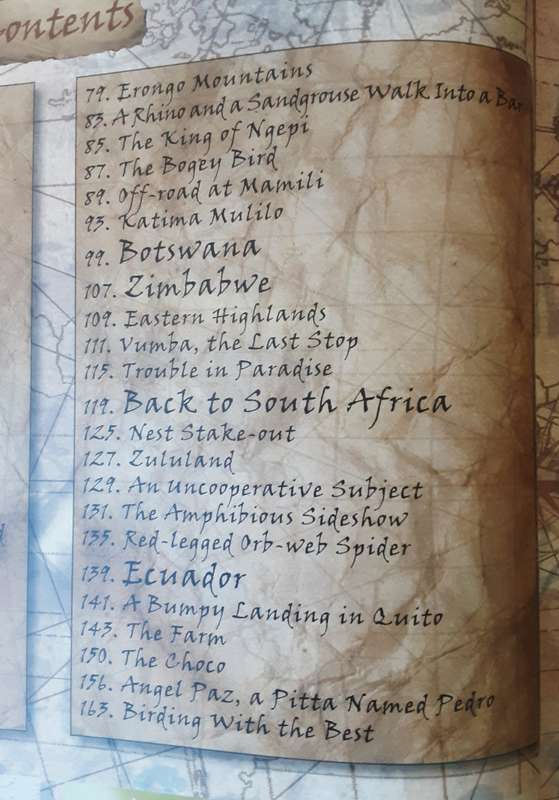 ontents
79. Erongo Mountains
83. A Rhino and a Sandgrouse Walk Into a Bar
85. The King of Ngepi
87. The Bogey Bird
89. Off-road at Mamili
93. Katima Mulilo
99. Botswana
107. Zimbabwe
109. Eastern Highlands
111. Vumba, the Last Stop
115. Trouble in Paradise
119. Back to South Africa
125. Nest Stake-out
127. Zululand
129. An Uncooperative Subject
131. The Amphibious Sideshow
135. Red-legged Orb-web Spider
139. Ecuador
141. A Bumpy Landing in Quito
143. The Farm
150. The Choco
156. Angel Paz, a Pitta Named Pedro
163. Birding With the Best